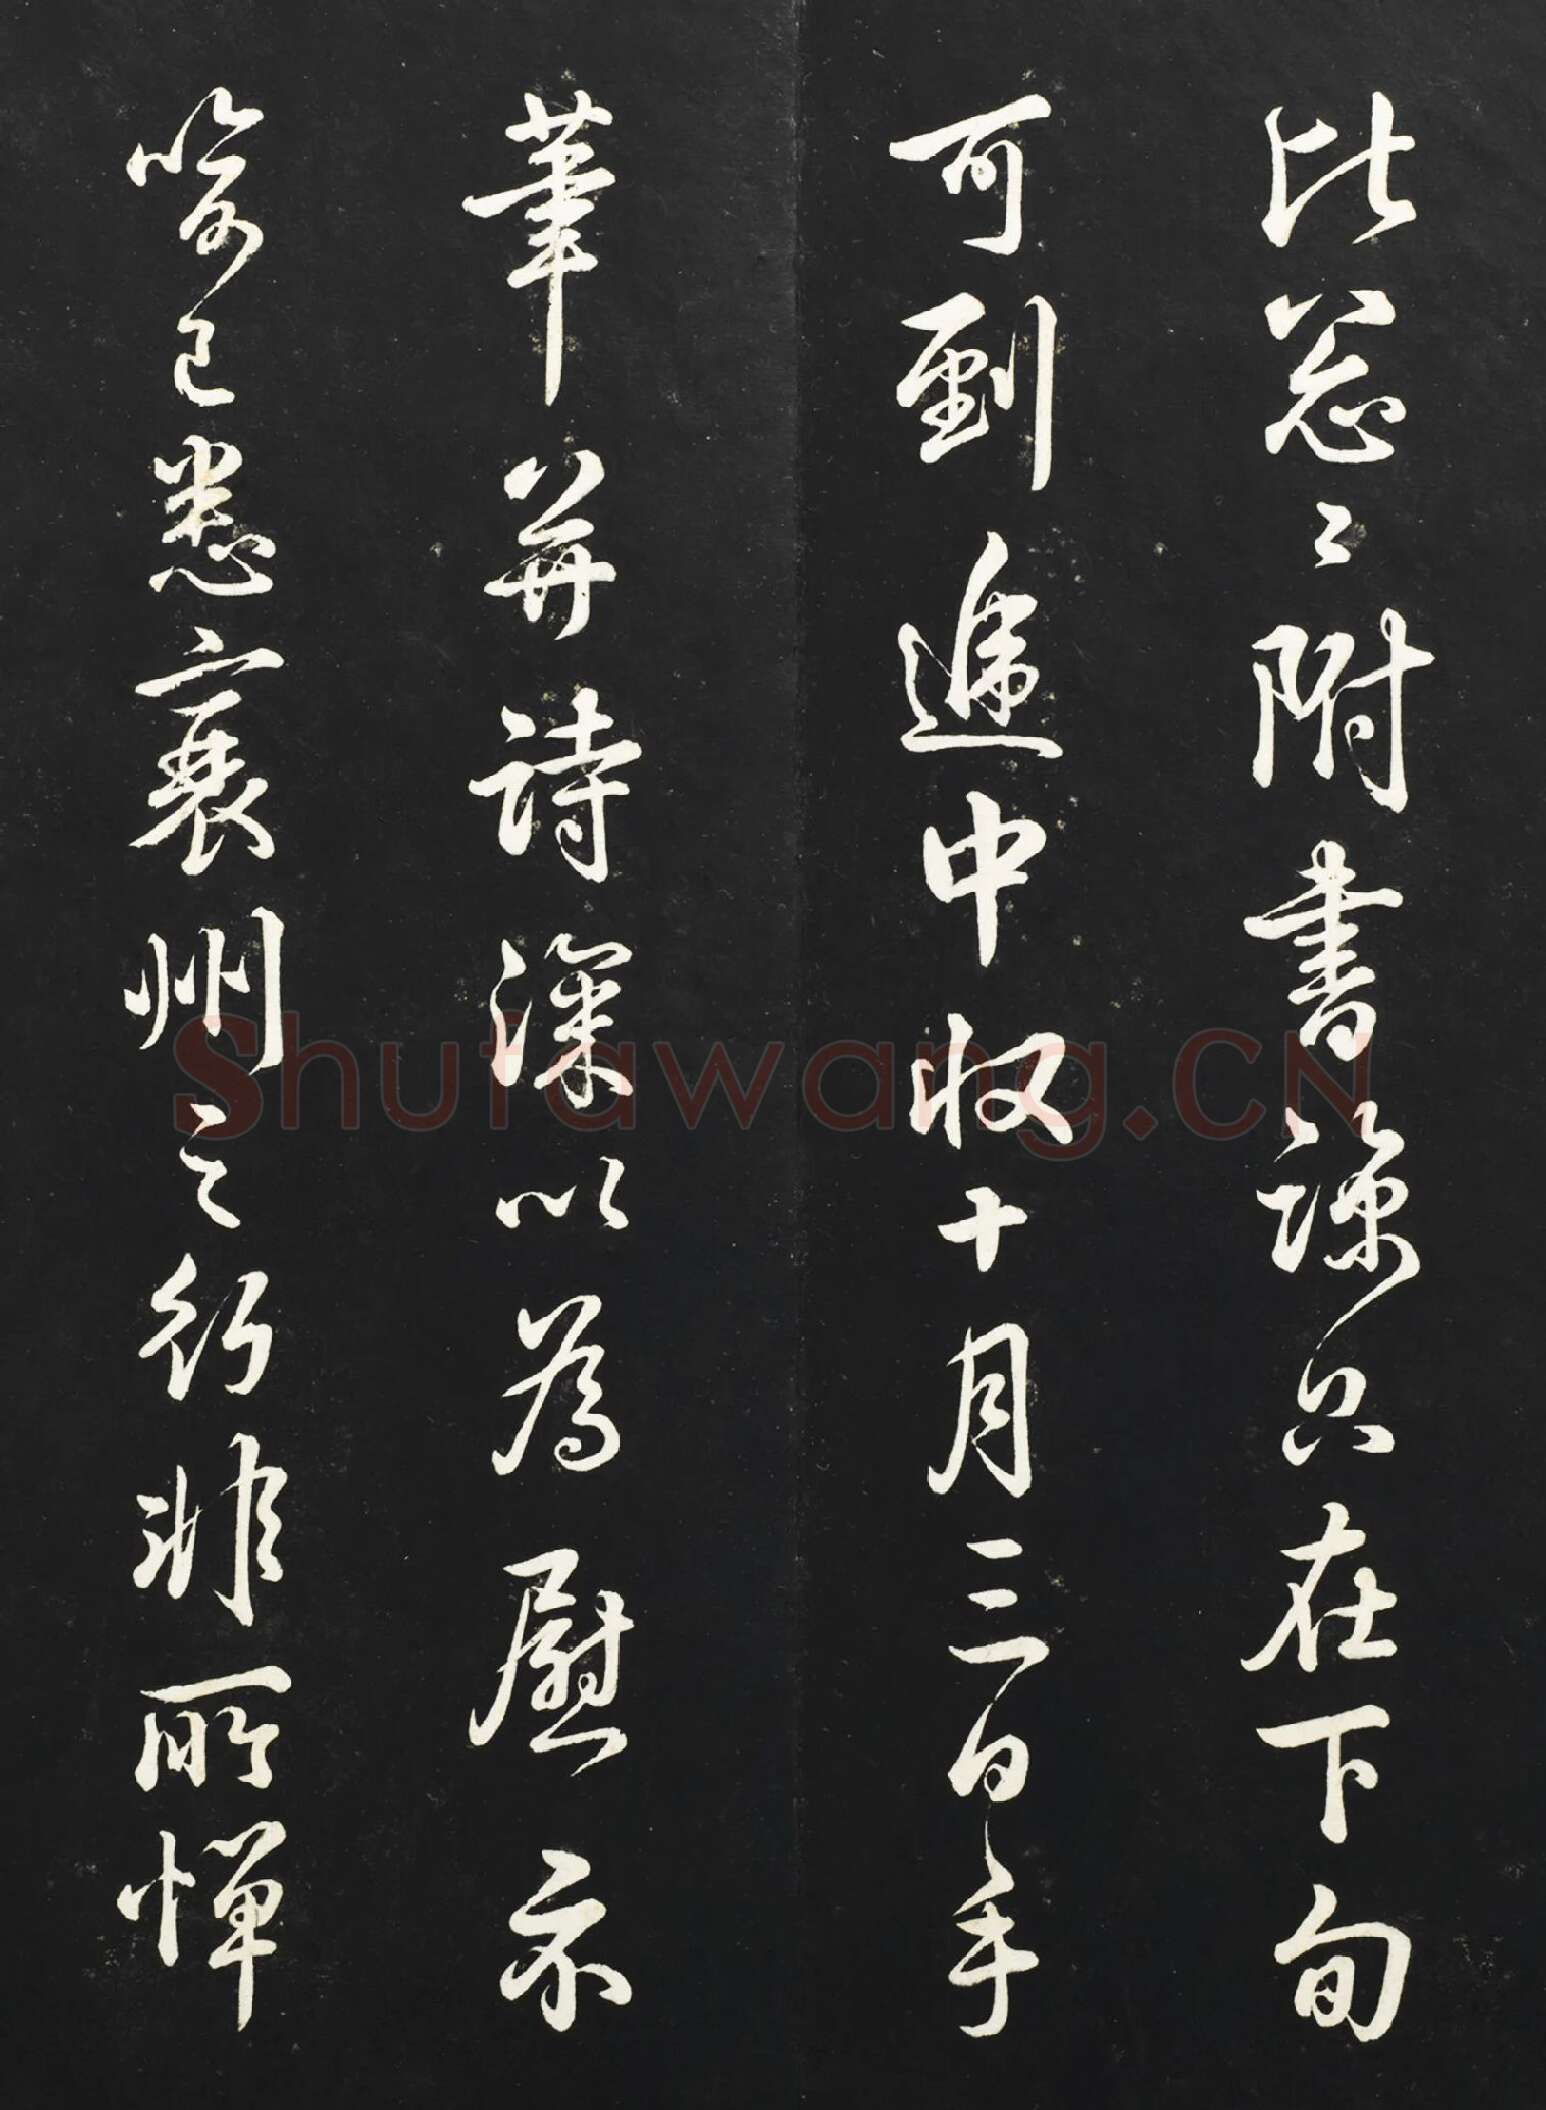 比忽々附書諒只在下旬
可到遞中收十月三日手
筆并詩深以為慰示
喻已悉襄州之行非所憚
Shufawang.CN